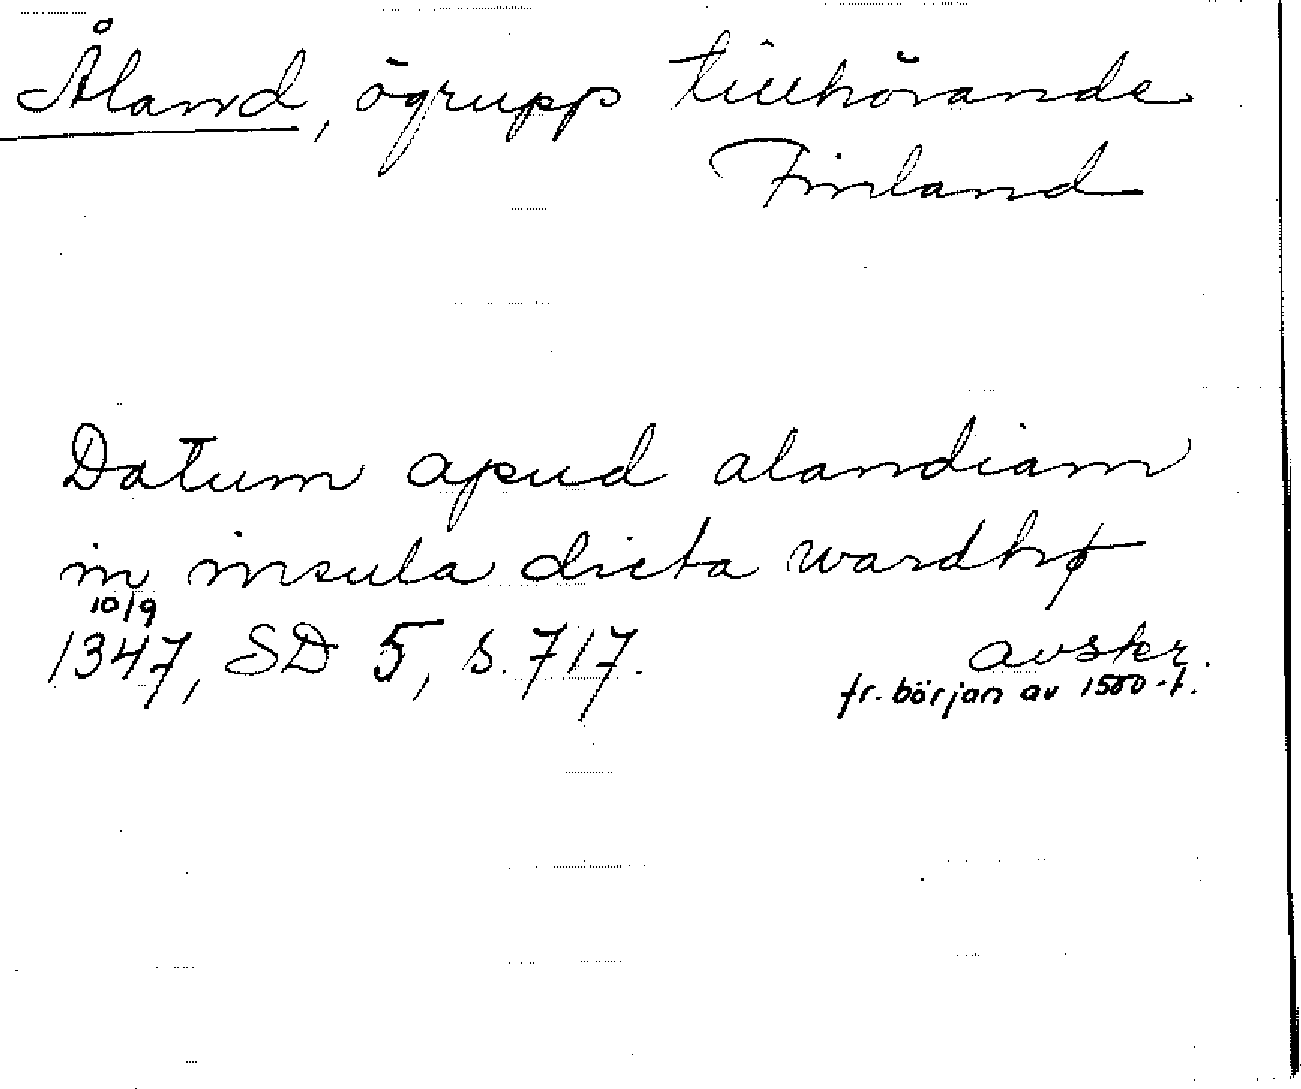 Åland, ögrupp tillhörande
Finland
Datum apud alandiam
in insula dicta wardhø
10/9
1347, SD 5, s. 717.
avskr.
fr. början av 1500-t.